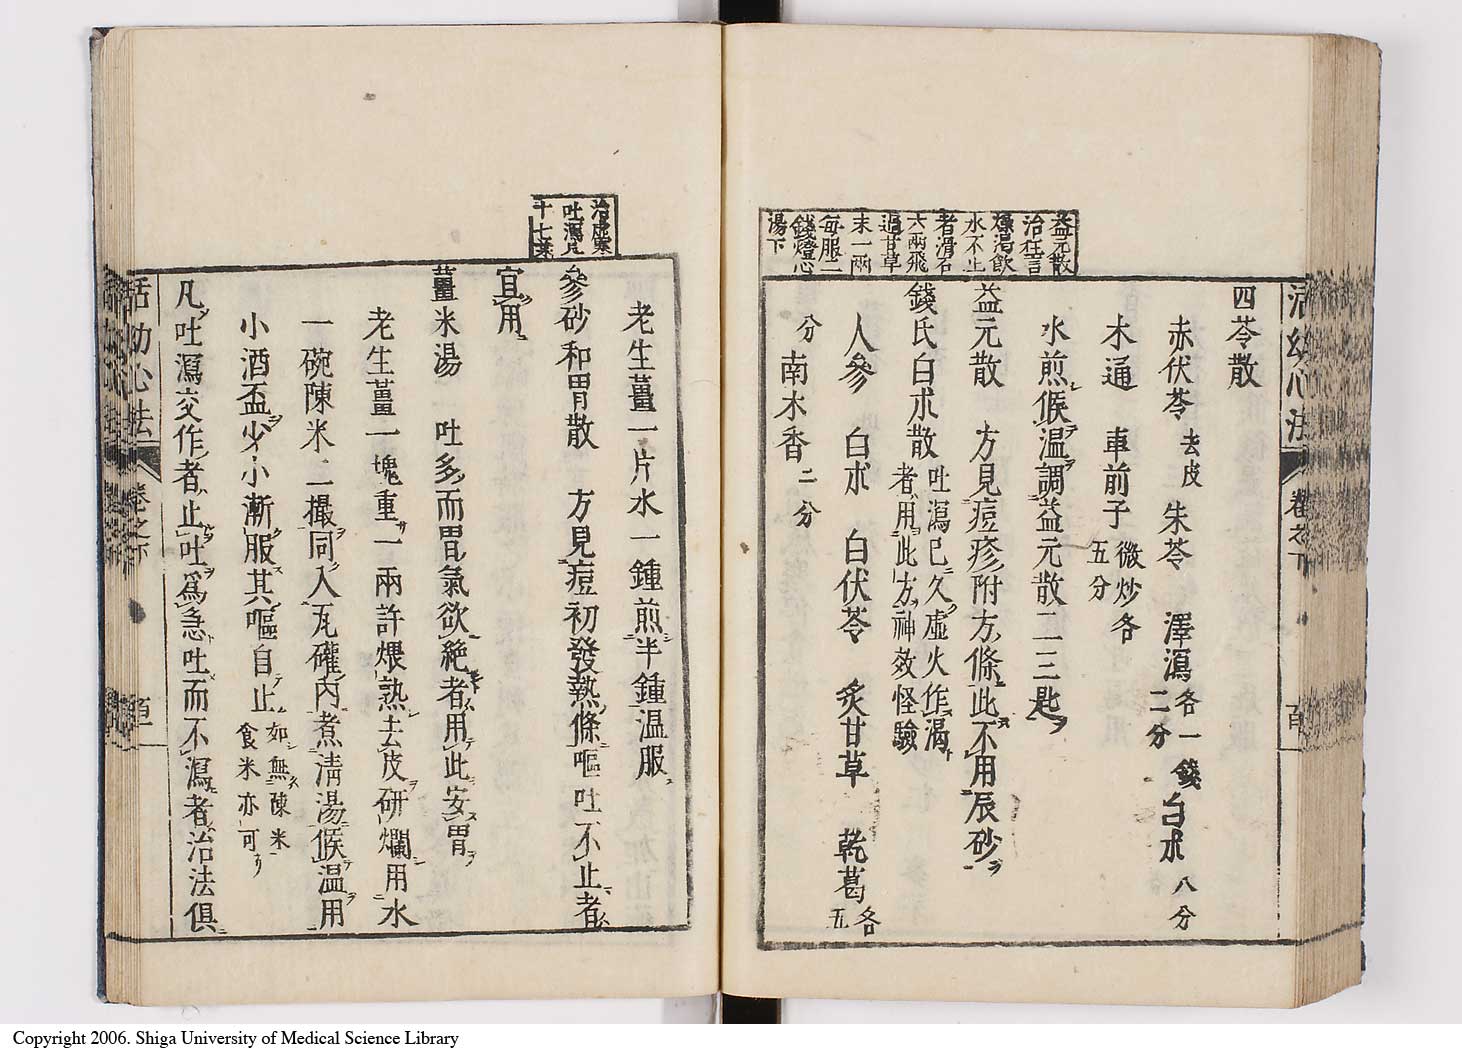 活幼心法 卷之下 百
益元散
治狂言
燥渴飲
水不止
者滑石
六兩飛
過甘草
末一兩
每服二
錢燈心
湯下
四苓散
赤茯苓 去皮 朱苓 澤瀉 各一錢二分 白朮 八分
木通 車前子 微炒各五分
水煎候温調益元散二三匙
益元散 方見痘疹附方條此不用辰砂
錢氏白朮散 吐瀉已久虛火作渴
者用此方神效怪驗
人參 白朮 白伏苓 炙甘草 乾葛 各五
分 南木香 二分
治虛寒
吐瀉凡
十七葉
老生薑一片水一鍾煎半鍾温服
參砂和胃散 方見痘初發熱條嘔吐不止者
宜用
薑米湯 吐多而胃氣欲絶者用此安胃
老生薑一塊重一兩許煨熟去皮研爛用水
一碗陳米二撮同入瓦礶内煮清湯候温用
小酒盃少小漸服其嘔自止 如無陳米
食米亦可
凡吐瀉交作者止吐爲急吐而不瀉者治法俱
活幼心法 卷之下 百一
Copyright 2006. Shiga University of Medical Science Library